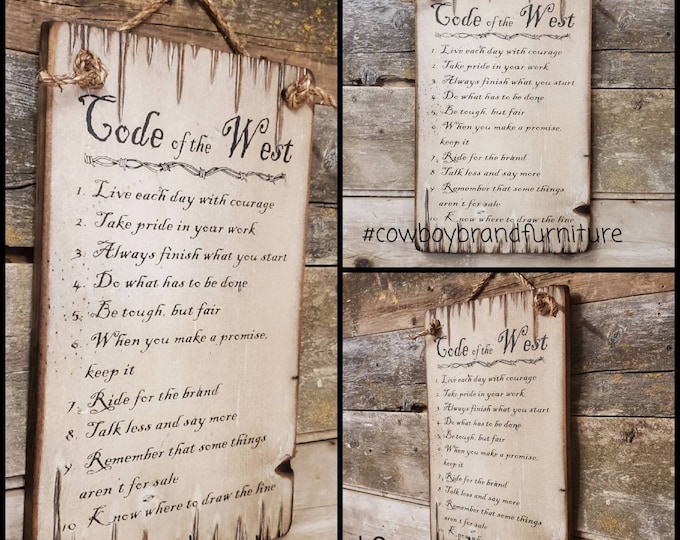 Code of the West
1. Live each day with courage
2. Take pride in your work
3. Always finish what you start
4. Do what has to be done
5. Be tough, but fair
6. When you make a promise,
keep it
7. Ride for the brand
8. Talk less and say more
9. Remember that some things
aren't for sale
10. Know where to draw the line
Code of the West
1. Live each day with courage
2. Take pride in your work
3. Always finish what you start
4. Do what has to be done
5. Be tough, but fair
6. When you make a promise,
keep it
7. Ride for the brand
8. Talk less and say more
9. Remember that some things
aren't for sale
10. Know where to draw the line
#cowboybrandfurniture
Code of the West
1. Live each day with courage
2. Take pride in your work
3. Always finish what you start
4. Do what has to be done
5. Be tough, but fair
6. When you make a promise,
keep it
7. Ride for the brand
8. Talk less and say more
9. Remember that some things
aren't for sale